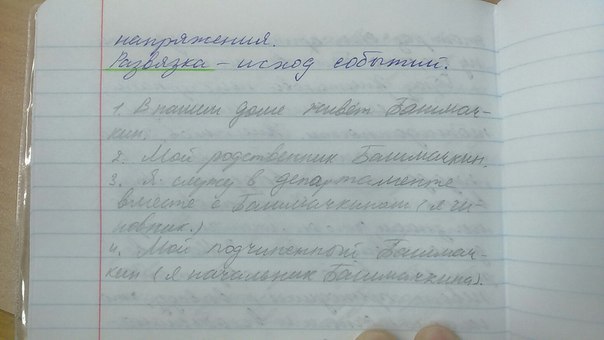 напряжения.
Развязка – исход событий.
1. В нашем доме живёт Башмач-
кин.
2. Мой родственник Башмачкин.
3. Я служу в департаменте
вместе с Башмачкиным (я чи-
новник.)
4. Мой подчиненный Башмач-
кин (я начальник Башмачкина).